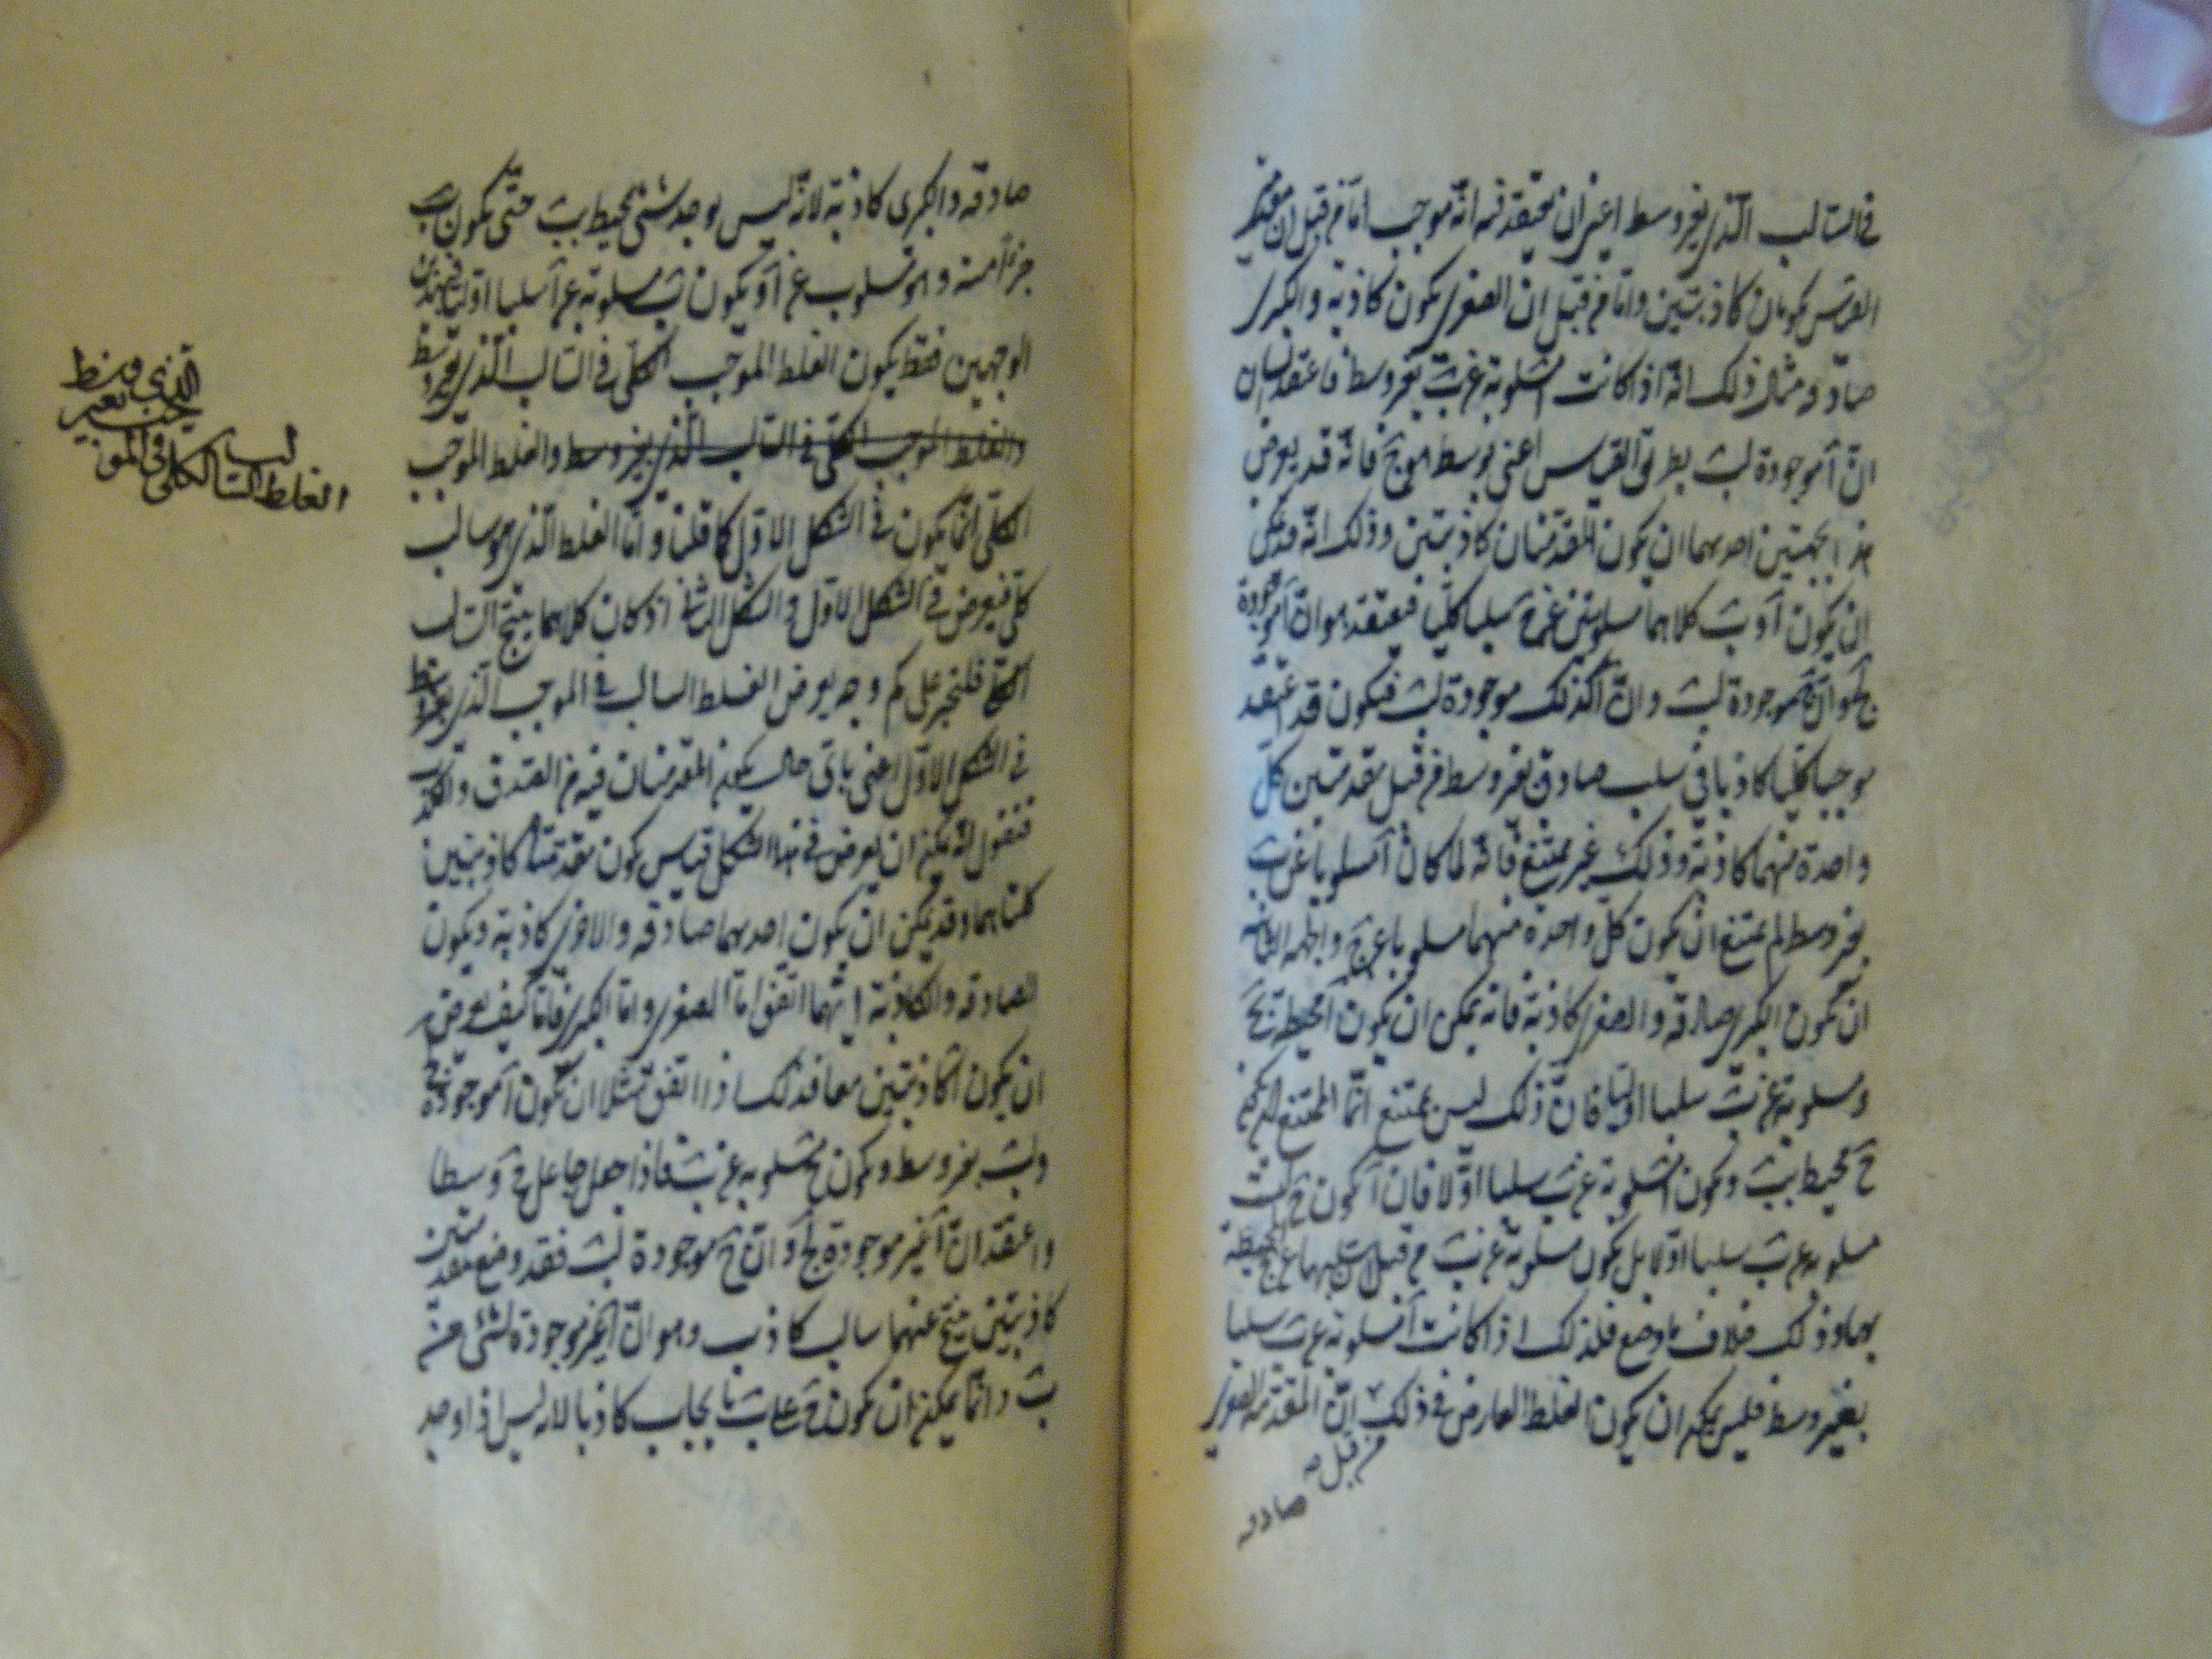 في السالب الذي بغير وسط اعني ان يعتقد فيه انه موجب اما من قبل ان مقدمتي
القياس يكونان كاذبتين واما من قبل ان الصغرى يكون كاذبة والكبرى
صادقه ومثال ذلك انه اذا كانت آ مسلوبة عن ب بغير وسط فاعتقد انسان
ان آ موجودة لب بطريق القياس اعني بوسط هو ج فانه قد يعرض
هذا بجهتين احديهما ان يكون المقدمتان كاذبتين وذلك انه قد يمكن
ان يكون آ و ب كلاهما مسلوبتين عن ج سلبا كليا فيعتقد هو ان آ موجودة
لج وان ج موجودة لب وان آ كذلك موجودة لب فيكون قد اعتقد
موجبا كليا كاذبا في سلب صادق بغير وسط من قبل مقدمتين كل
واحدة منهما كاذبة وذلك غير ممتنع فانه لما كان آ مسلوبا عن ب
بغير وسط لم يمتنع ان يكون كل واحدة منهما مسلوبا عن ج والجهه الثانيه
ان تكون الكبرى صادقة والصغرى كاذبة فانه يمكن ان يكون آ محيطة بج
ومسلوبة عن ب سلبا اوليا فان ذلك ليس يمتنع انما الممتنع ان يكون
ج محيط بب وتكون آ مسلوبة عن ب سلبا اولا فان آ تكون ح ليست
مسلوبه عن ب سلبا اولا بل يكون مسلوبة عن ب من قبل سلبها عن ج المحيطة
بها وذلك خلاف ما وضع فلذلك اذا كانت آ مسلوبة عن ب سلبا
بغير وسط فليس يمكن ان يكون الغلط العارض في ذلك ان المقدمة الصغرى
من قبل
صادقه
صادقه والكبرى كاذبة لانه ليس يوجد شئ محيط بب حتى يكون ب
جزءا منه وهو مسلوب عن آ او يكون ب مسلوبة عن آ سلبا اوليا فبهذين
الوجهين فقط يكون الغلط الموجب الكلي في السالب الذي بغير وسط
والغلط الموجب الكلي في السالب الذي بغير وسط والغلط الموجب
الكلي انما يكون في الشكل الاول كما قلنا واما الغلط الذي هو سالب
كلي فيعرض في الشكل الاول والشكل الثاني اذ كان كلاهما ينتج السالب
الكلي فلنخبر على كم وجه يعرض الغلط السالب في الموجب الذي بغير وسط
في الشكل الاول اعني باي حال يكون المقدمتان فيه من الصدق والكذب
فنقول انه يمكن ان يعرض في هذا الشكل قياس يكون مقدمتاه كاذبتين
كلتاهما وقد يمكن ان يكون احديهما صادقه والاخرى كاذبة ويكون
الصادقه والكاذبة ايتهما اتفق اما الصغرى واما الكبرى فاما كيف يعرض
ان يكون الكاذبتين معا فذلك اذا اتفق مثلا ان يكون آ موجودة لج
ولب بغير وسط ويكون ج مسلوبه عن ب فاذا جعل جاعل ج وسطا
واعتقد ان آ غير موجودة لج وان ج موجودة لب فقد وضع مقدمتين
كاذبتين ينتج عنهما سالب كاذب وهو ان آ غير موجودة لشئ من
ب وانما يمكن ان تكون ج على ب بايجاب كاذبا لانه ليس اذا وجد
والغلط السالب الكلي في الموجب
الذي بغير وسط